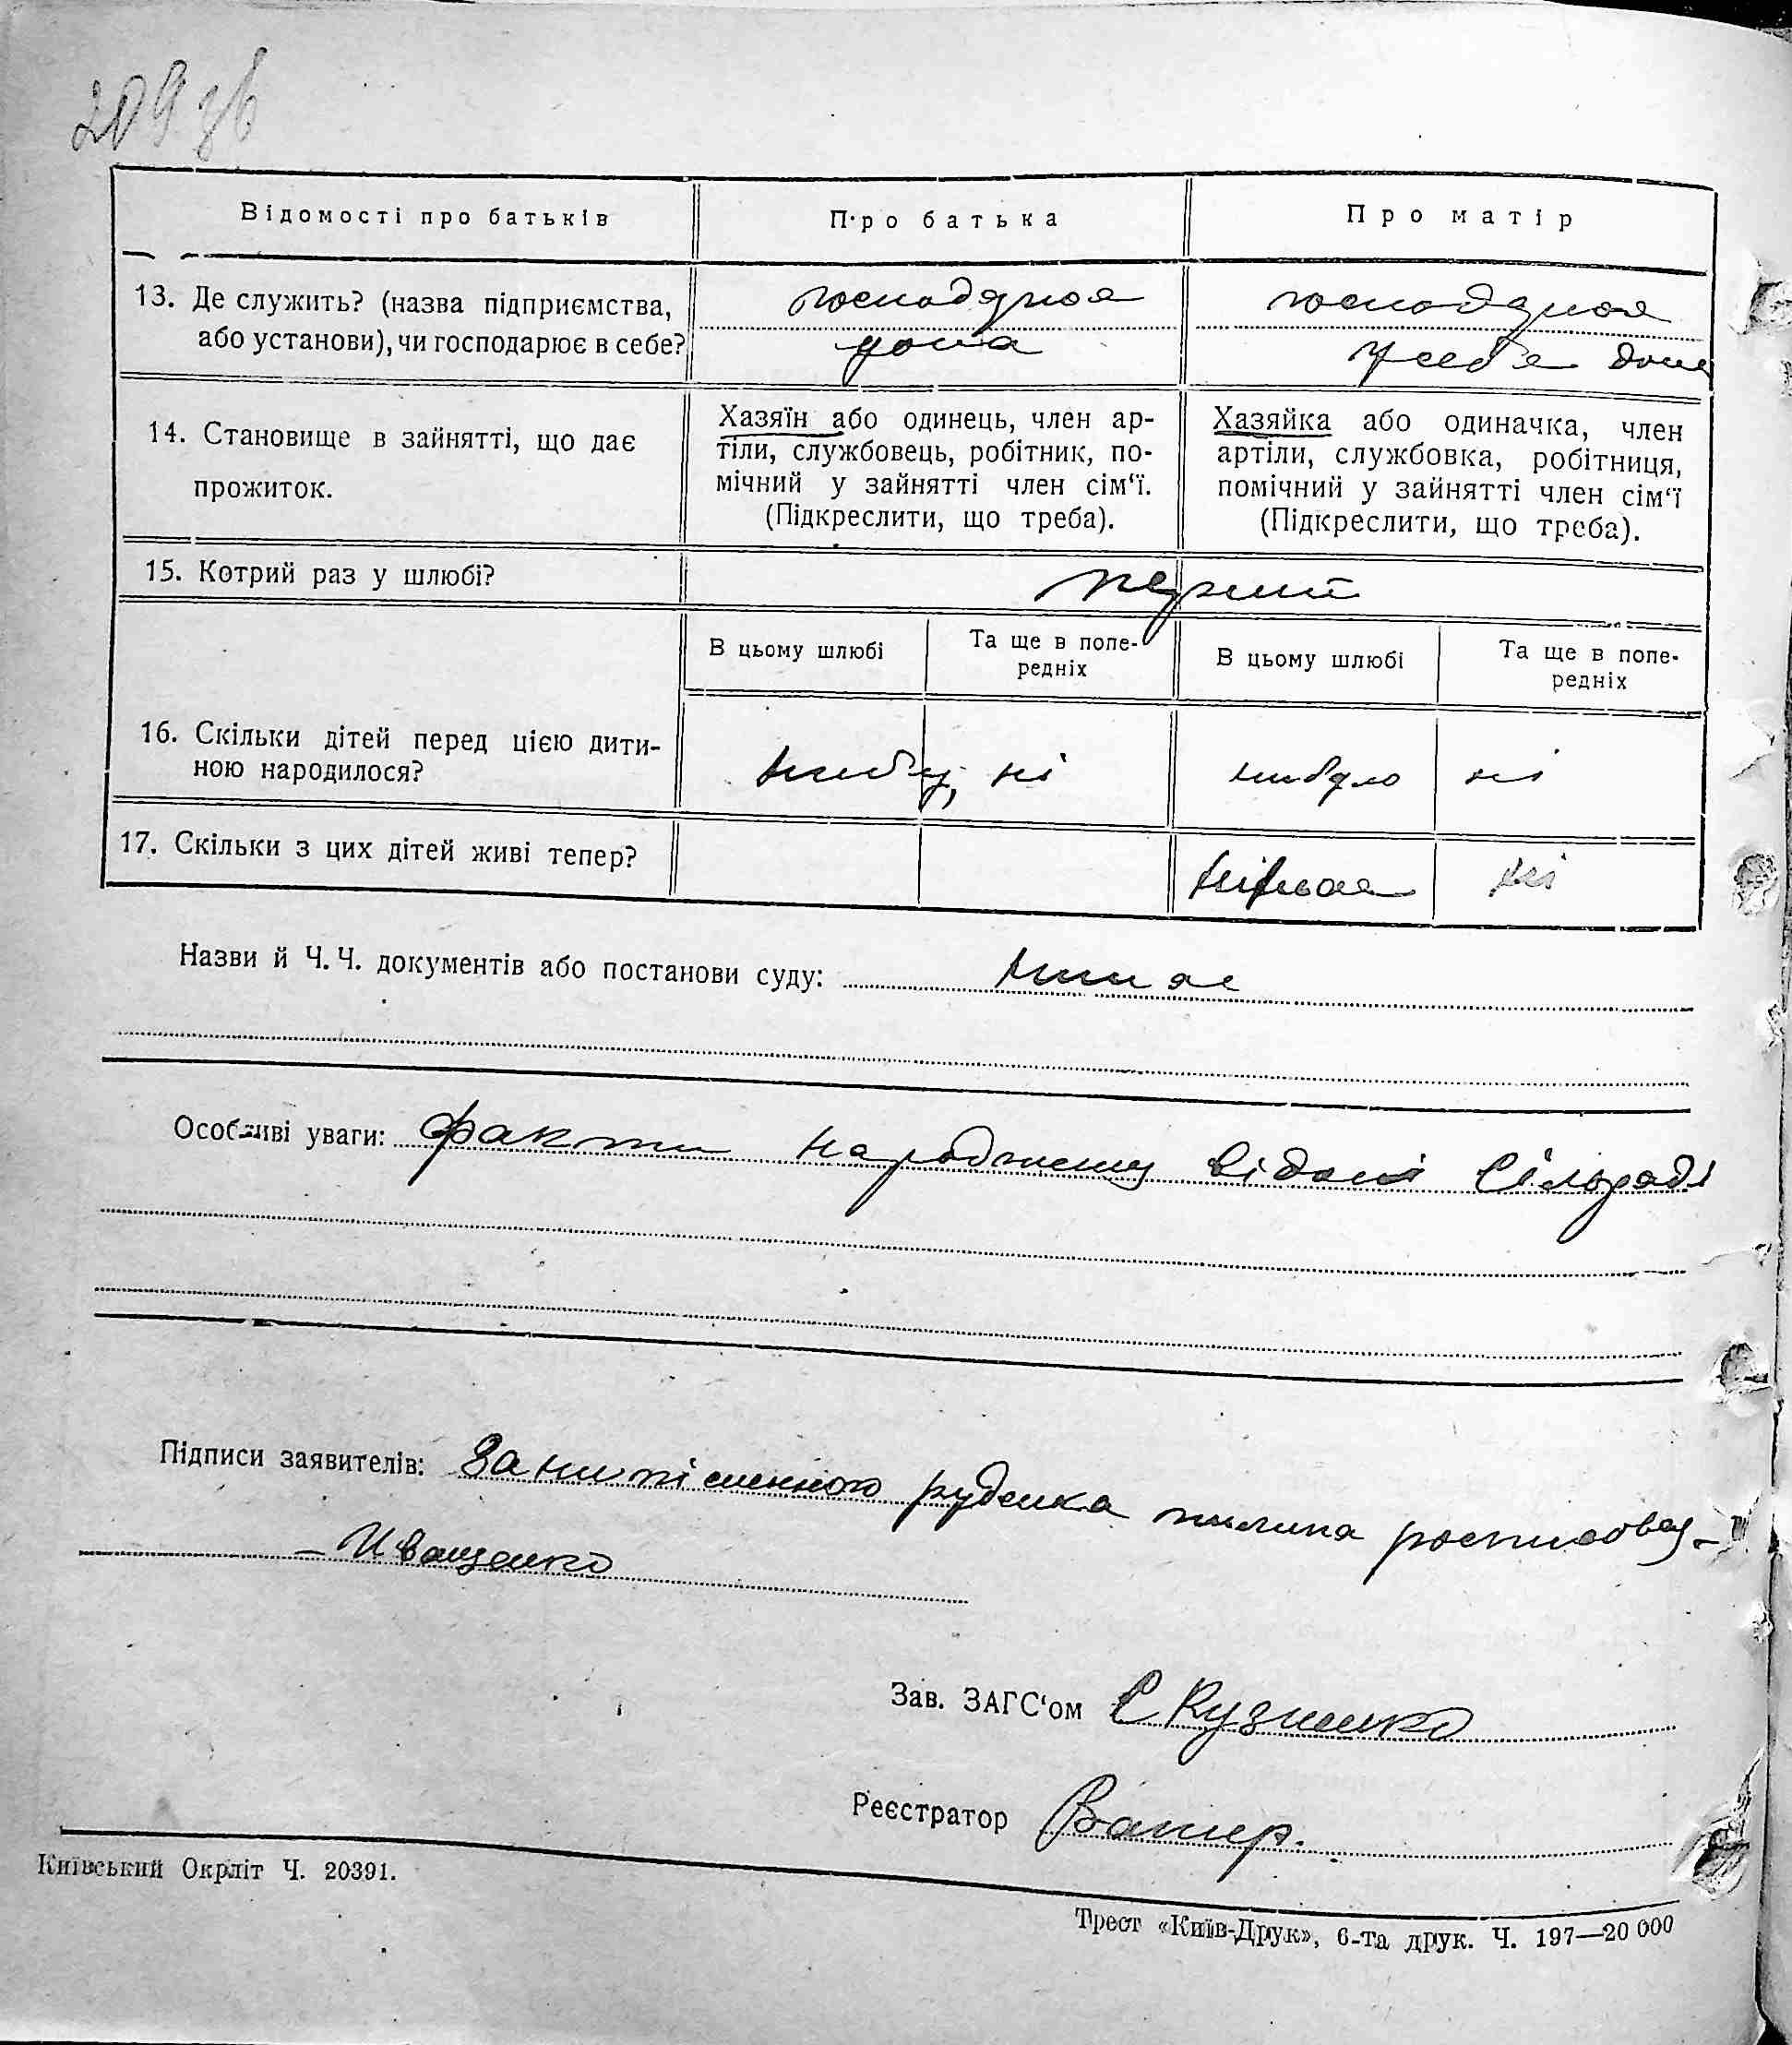 209 зв
Відомості про батьків
Про батька
Про матір
13. Де служить? (назва підприємства,
або установи), чи господарює в себе?
дома
у себе дома
14. Становище в зайнятті, що дає
прожиток.
Хазяїн або одинець, член ар-
тіли, службовець, робітник, по-
мічний у зайнятті член сім‘ї.
(Підкреслити, що треба).
Хазяйка або одиначка, член
артіли, службовка, робітниця,
помічний у зайнятті член сім‘ї
(Підкреслити, що треба).
15. Котрий раз у шлюбі?
перший
В цьому шлюбі
Та ще в попе-
редніх
В цьому шлюбі
Та ще в попе-
редніх
16. Скільки дітей перед цією дити-
ною народилося?
ні
ні
17. Скільки з цих дітей живі тепер?
ні
Назви й Ч. Ч. документів або постанови суду:
Особливі уваги: факти народженну відомі Сільраді
Підписи заявителів: За руденка пилипа
Иващенко
Зав. ЗАГС‘ом С Кузменко
Реєстратор
Київський Окрліт Ч. 20391.
Трест «Київ-Друк», 6-та друк. Ч. 197—20 000